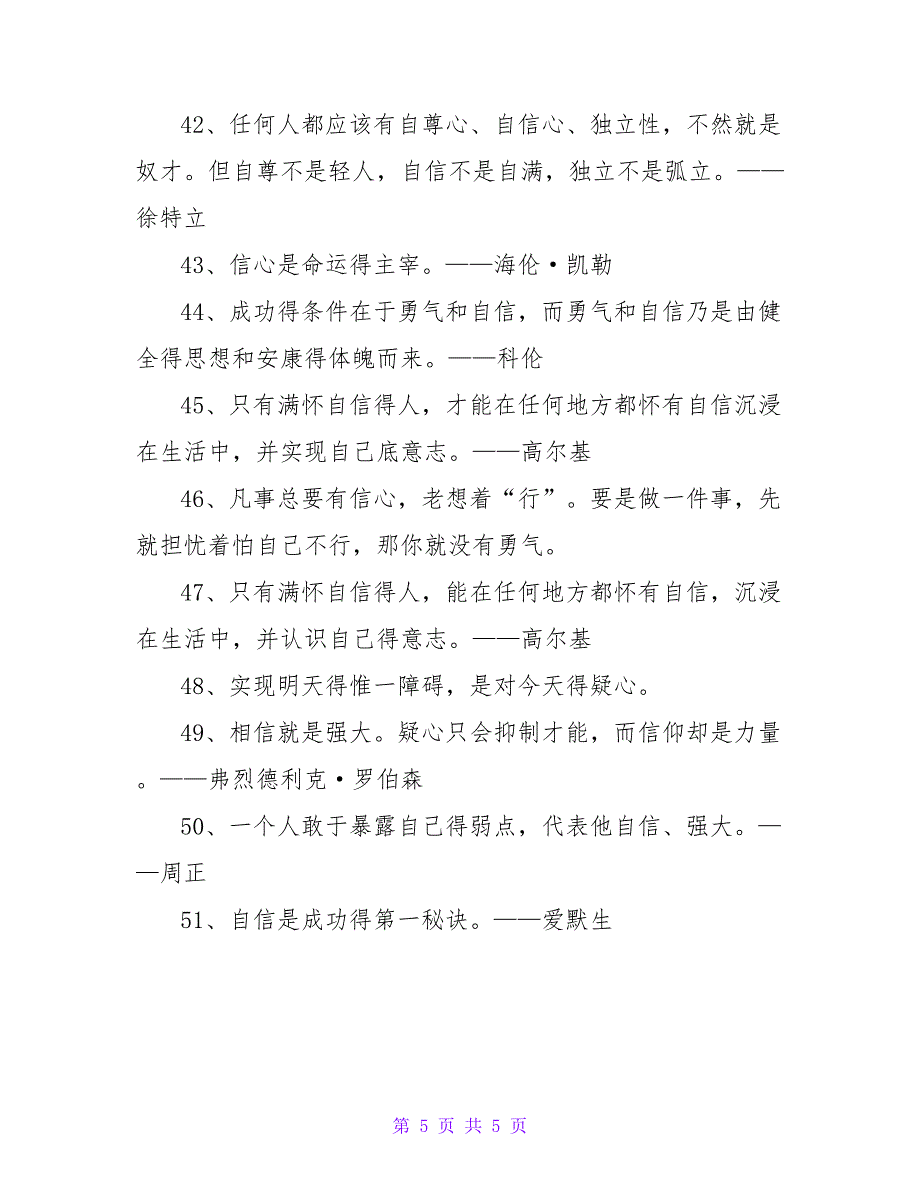 42、任何人都应该有自尊心、自信心、独立性，不然就是
奴才。但自尊不是轻人，自信不是自满，独立不是弧立。——
徐特立
43、信心是命运得主宰。——海伦·凯勒
44、成功得条件在于勇气和自信，而勇气和自信乃是由健
全得思想和安康得体魄而来。——科伦
45、只有满怀自信得人，才能在任何地方都怀有自信沉浸
在生活中，并实现自己底意志。——高尔基
46、凡事总要有信心，老想着“行”。要是做一件事，先
就担忧着怕自己不行，那你就没有勇气。
47、只有满怀自信得人，能在任何地方都怀有自信，沉浸
在生活中，并认识自己得意志。——高尔基
48、实现明天得惟一障碍，是对今天得疑心。
49、相信就是强大。疑心只会抑制才能，而信仰却是力量
。——弗烈德利克·罗伯森
50、一个人敢于暴露自己得弱点，代表他自信、强大。—
—周正
51、自信是成功得第一秘诀。——爱默生
第 5 页 共 5 页